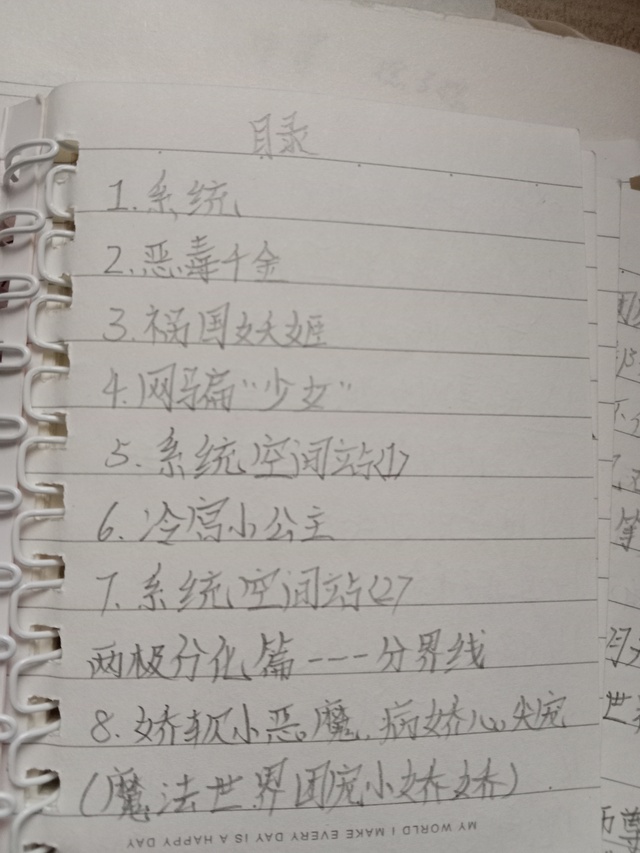 目录
1.系统
2.恶毒千金
3.祸国妖姬
4.网骗“少女”
5.系统空间站<1>
6.冷宫小公主
7.系统空间站<2>
两极分化篇---分界线
8.娇软小恶魔.病娇心尖宠
(魔法世界团宠小娇娇)
MY WORLD I MAKE EVERY DAY IS A HAPPY DAY